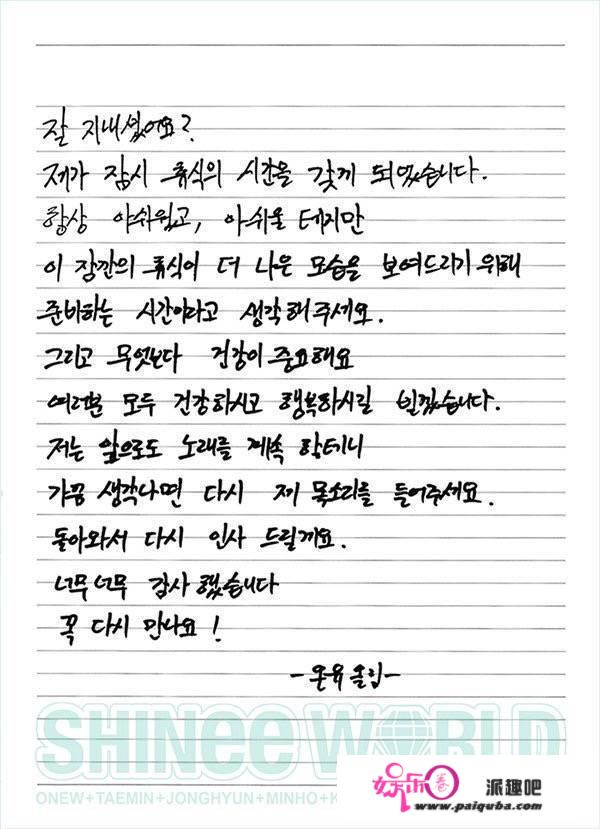 잘 지내셨어요?
제가 잠시 휴식의 시간을 갖게 되었습니다.
항상 아쉬웠고, 아쉬울 테지만
이 잠깐의 휴식이 더 나은 모습을 보여드리기 위해
준비하는 시간이라고 생각해주세요.
그리고 무엇보다 건강이 중요해요
여러분 모두 건강하시고 행복하시길 빌겠습니다.
저는 앞으로도 노래를 계속 할테니
가끔 생각나면 다시 제 목소리를 들어주세요.
돌아와서 다시 인사 드릴께요.
너무너무 감사했습니다
꼭 다시 만나요!
-온유 올림-
SHINee WORLD
ONEW+TAEMIN+JONGHYUN+MINHO+K
娱乐圈 派趣吧
www.paiquba.com